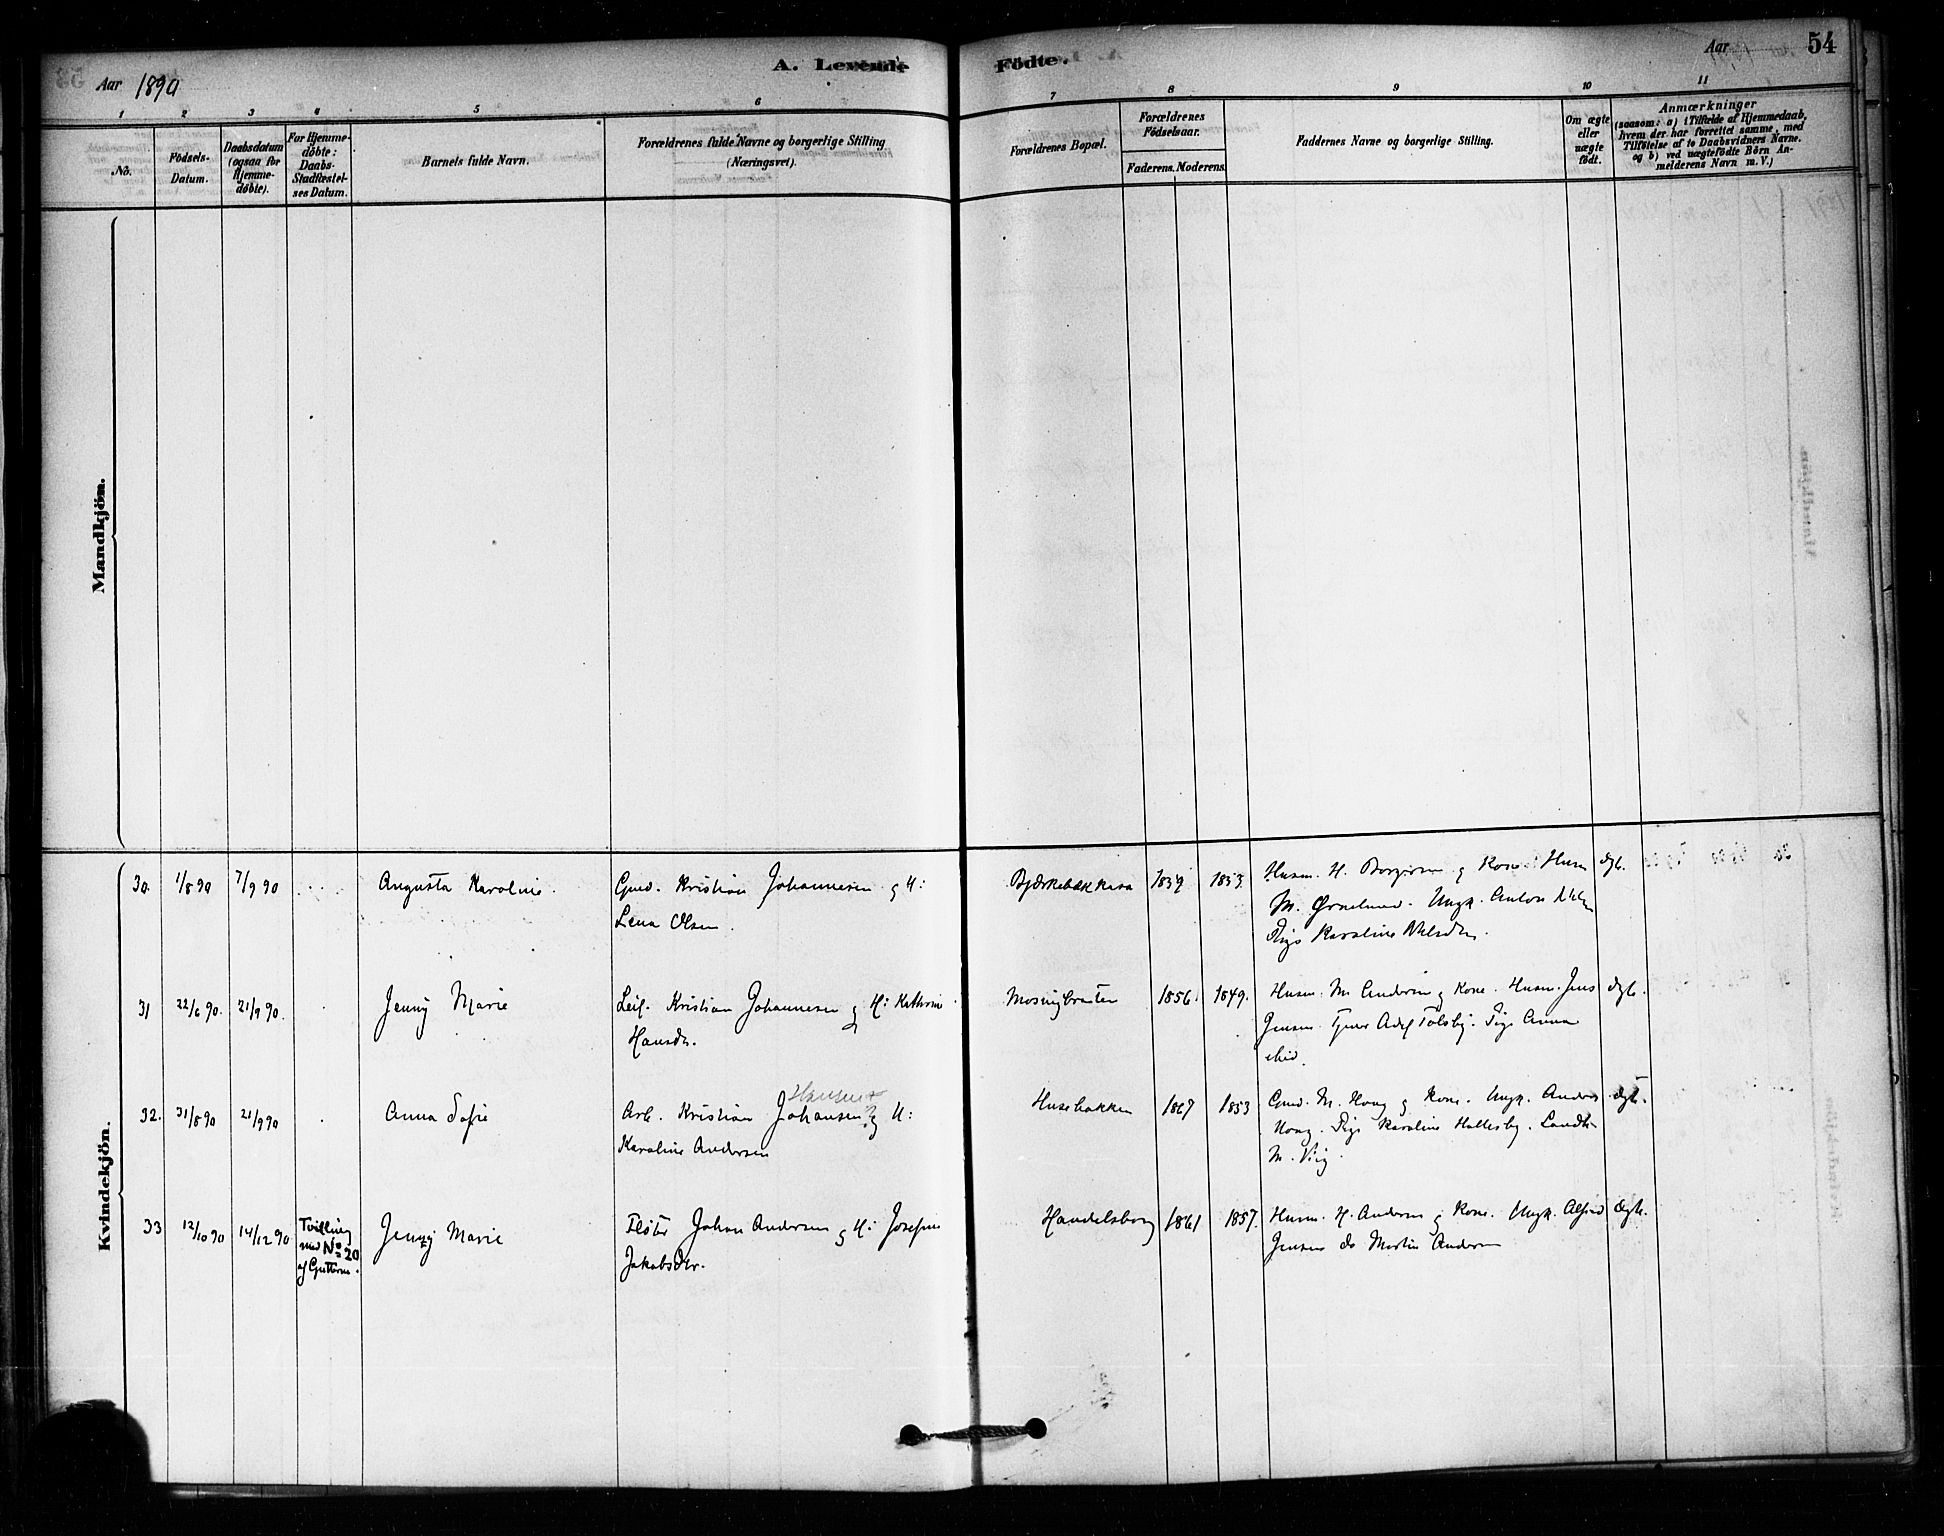 Aar 1890
A. Levende
Födte.
Aar
54
1
2
3
4
5
6
7
8
9
10
11
No.
Födsels-
Datum.
Daabsdatum
(ogsaa for
Hjemme-
döbte).
For Hjemme-
döbte:
Daabs-
Stadfæstel-
ses Datum.
Barnets fulde Navn.
Forældrenes fulde Navne og borgerlige Stilling
(Næringsvei).
Forældrenes Bopæl.
Forældrenes
Födselsaar.
Faderens. Moderens.
Faddernes Navne og borgerlige Stilling.
Om ægte
eller
uægte
födt.
Anmærkninger
(saasom: a) i Tilfælde af Hjemmedaab,
hvem der har forrettet samme, med
Tilföielse af to Daabsvidners Navne.
og b) ved uægtefödte Börn An-
melderens Navn m. V.)
Mandkjön.
Kvindekjön.
30. 1/8 90 7/9 90 Augusta Karoline. Gmd. Kristian Johannesen og H: Bjærkebækkasa 1839 1853. Husm. H. og Kone Husm ægte.
Lena Olsen. M. Ungk. Anton
Pige Karoline
31 22/6 90. 21/9 90. Jenny Marie Leil. Kristian Johannesen og H: Kathrine 1856. 1849. Husm. M. Andersen og Kone. Husm. Jens ægte.
Hansdr. Jensen. Tjener Adolf Tolsby. Pige Anna
32. 31/8 90 21/9 90 Anna Sofie Arb. Kristian Johansen og H: Husebakken 1867 1853 Gmd. M. Houg og Kone. Ungk. Anders ægte.
Hansen
Karoline Andersen Houg. Pige Karoline Hallesby. Landh.
M. Vig.
33 12/10 90 14/12 90 Tvilling Jenny Marie Fløter Johan Andersen og H: Josefine Handelsborg 1861 1857. Husm. H. Andersen og Kone. Ungk. Alfred ægte.
med No. 20
af Guttene. Jakobsdtr. Jensen do Martin Andersen